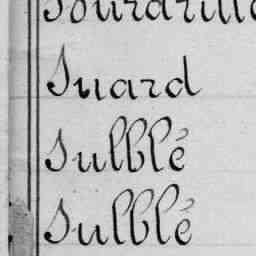 Suard
Sulblé
Sulblé